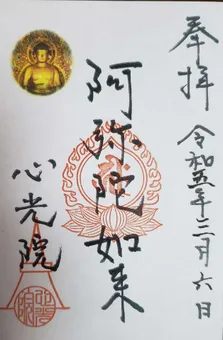 奉拝
令和五年三月六日
阿弥陀如来
心光院